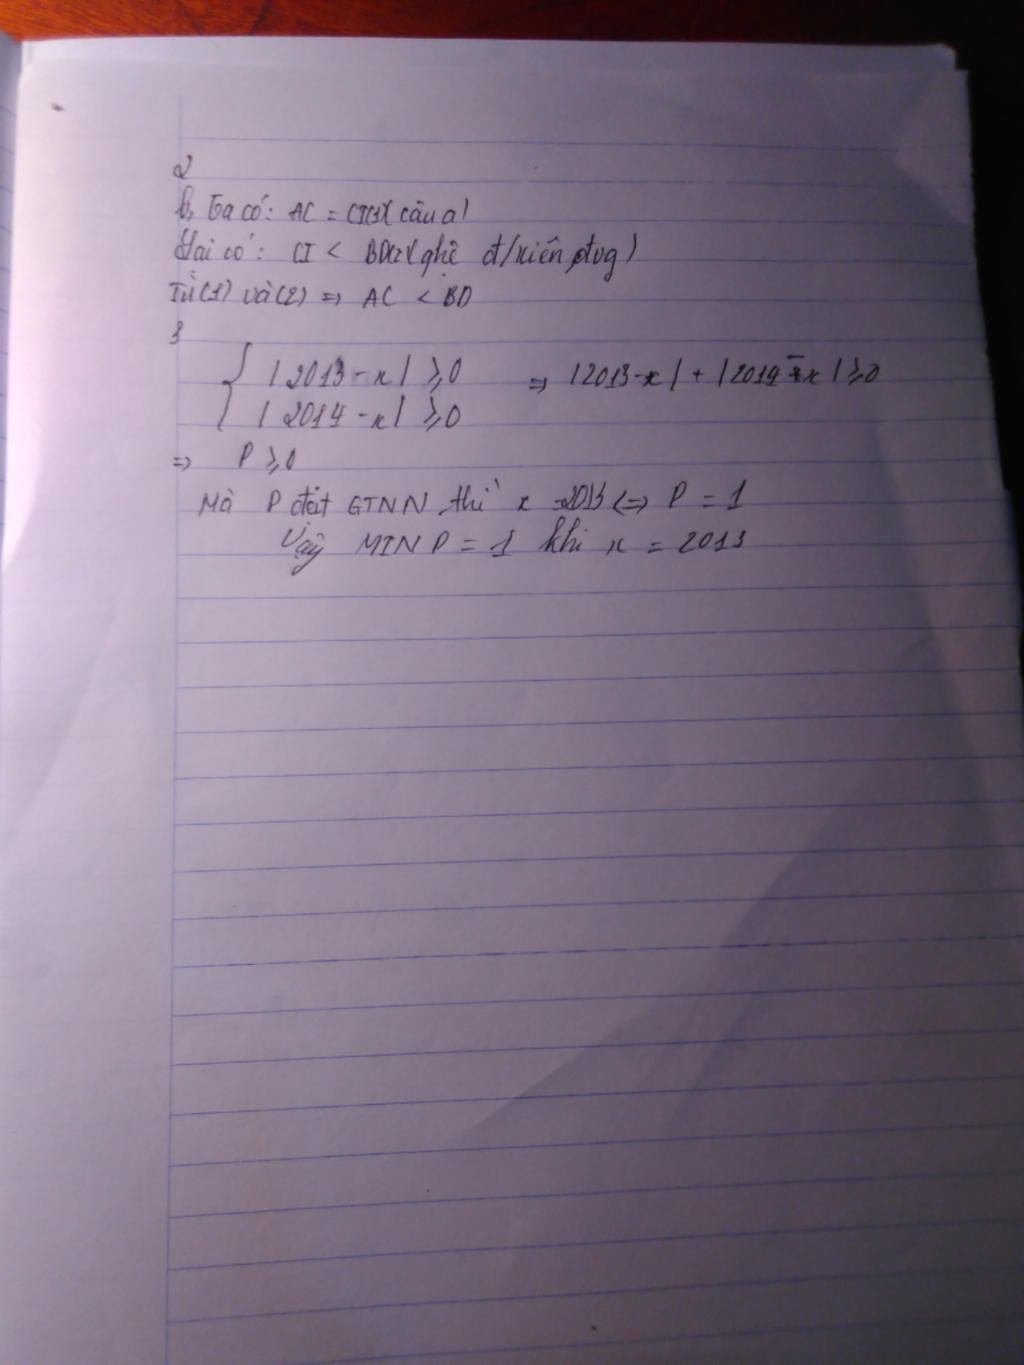 2
b, Ta có: AC = CI(1)( câu a)
Lại có: CI < BD(2)( qhệ đ/xiên, đvg)
Từ (1) và (2) => AC < BD
3
| 2013 - x | ≥ 0 => | 2013 - x | + | 2014 - x | ≥ 0
| 2014 - x | ≥ 0
=> P ≥ 0
Mà P đạt GTNN thì x = 2013 <=> P = 1
Vậy MIN P = 1 khi x = 2013